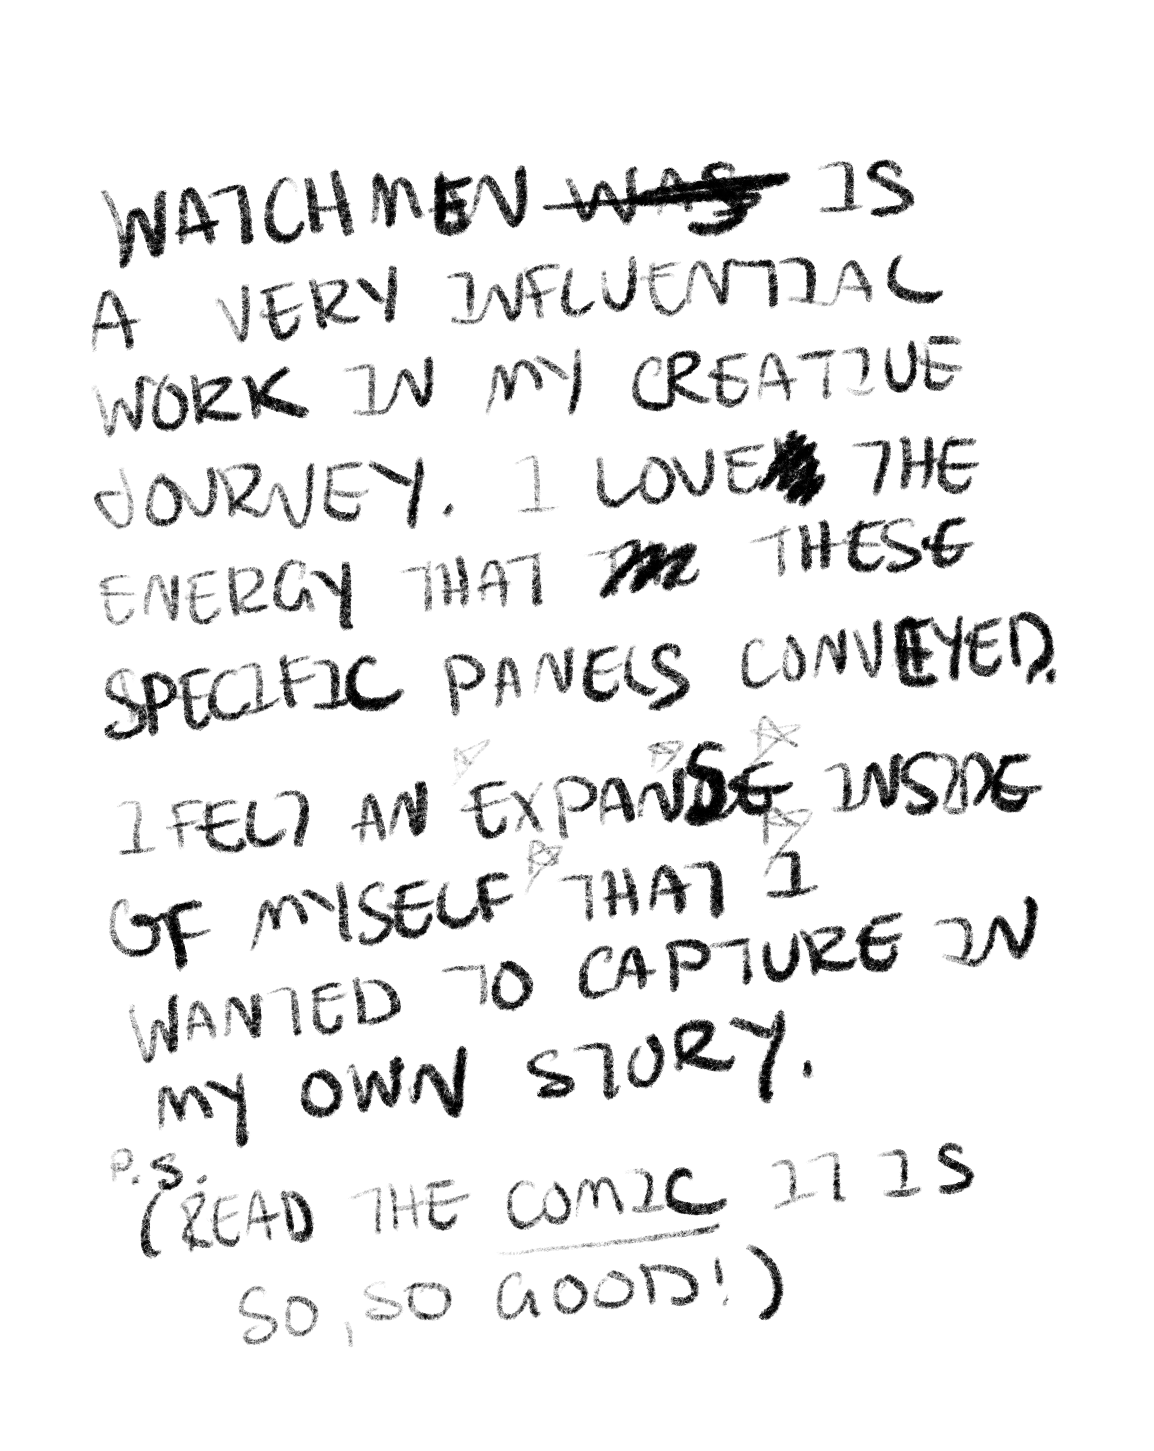 WATCHMEN WAS IS
A VERY INFLUENTIAL
WORK IN MY CREATIVE
JOURNEY. I LOVE THE
ENERGY THAT THESE
SPECIFIC PANELS CONVEYED.
I FELT AN EXPANSE INSIDE
OF MYSELF THAT I
WANTED TO CAPTURE IN
MY OWN STORY.
P.S.
(READ THE COMIC IT IS
SO, SO GOOD!)